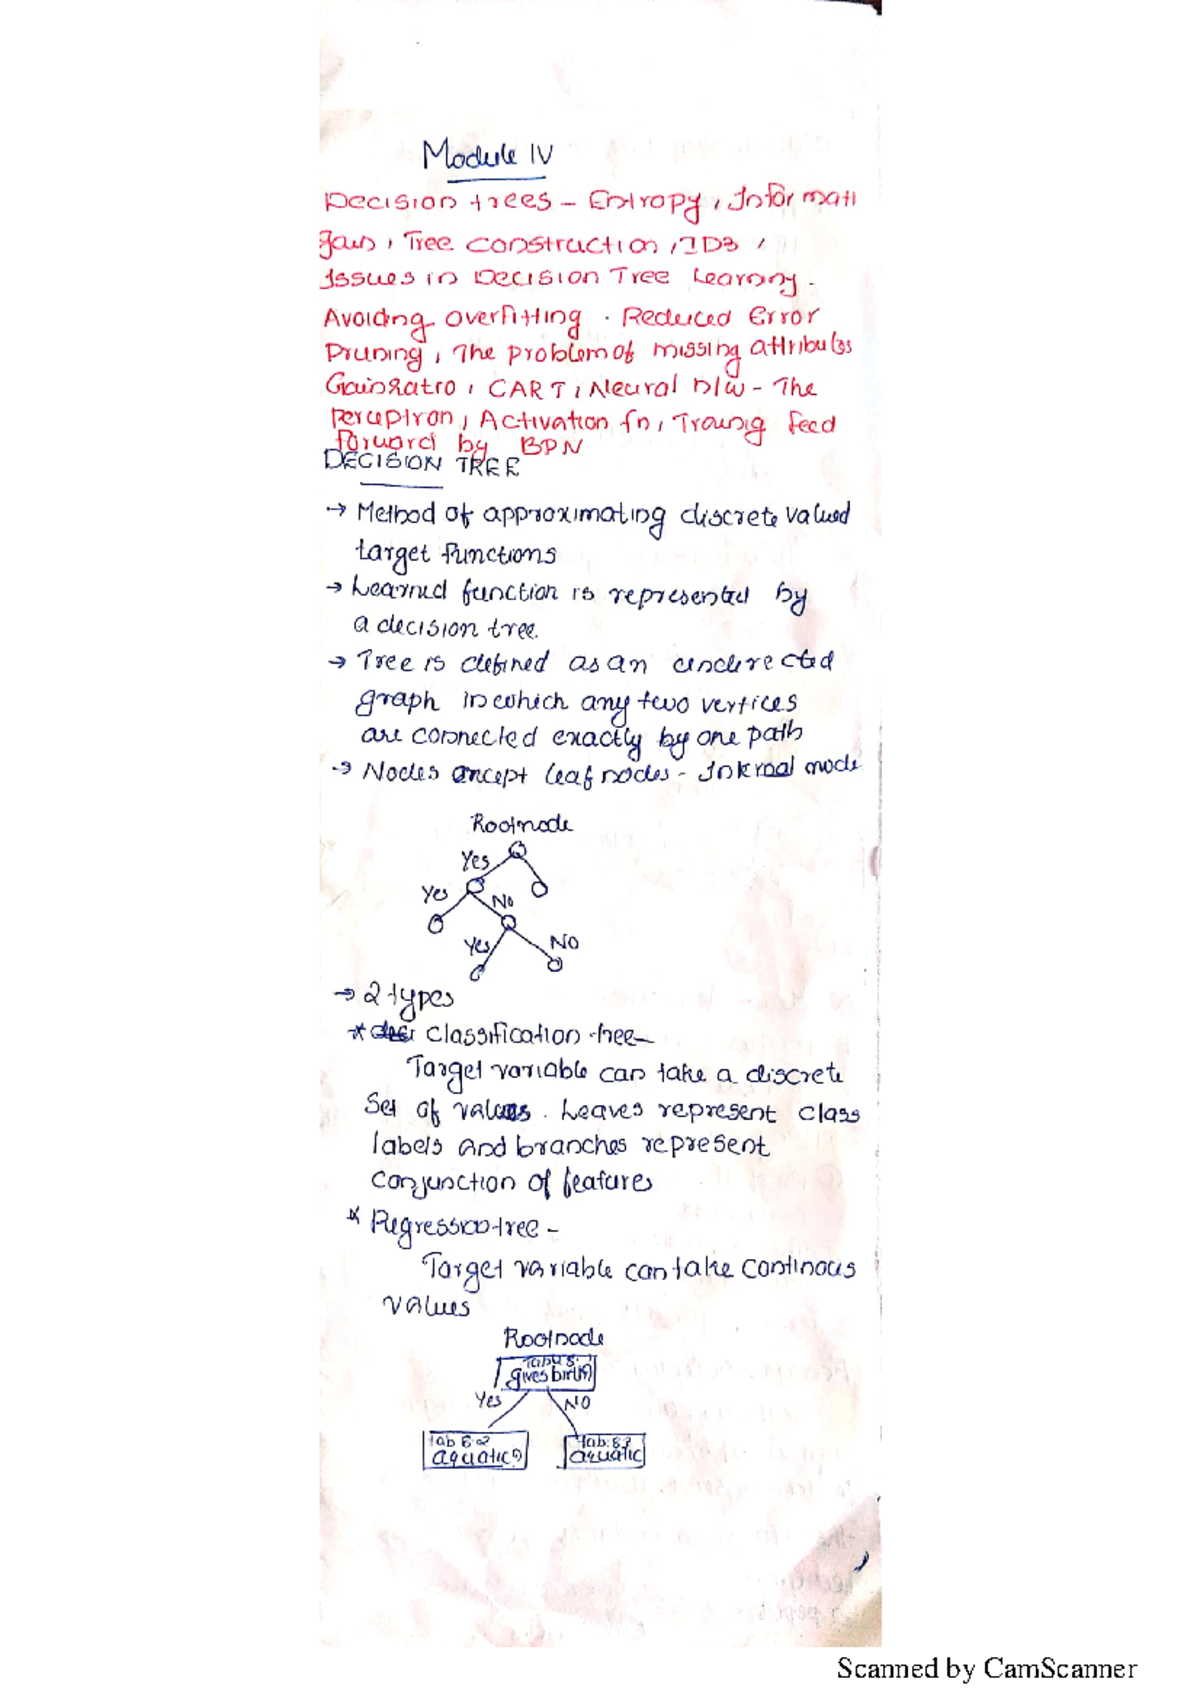 Module IV
Decision trees - Entropy, Informati
gain, Tree construction, ID3,
Issues in Decision Tree Learning.
Avoiding overfitting. Reduced Error
Pruning, The problem of missing attributes
Gain Ratio, CART, Neural N/W - The
Perceptron, Activation fn, Training feed
forward by BPN
DECISION TREE
→ Method of approximating discrete valued
target functions
→ Learned function is represented by
a decision tree.
→ Tree is defined as an undirected
graph in which any two vertices
are connected exactly by one path
→ Nodes except leaf nodes - Internal node
Rootnode
Yes
Yes No
Yes NO
→ 2 types
* classification tree-
Target variable can take a discrete
Set of values. Leaves represent class
labels and branches represent
conjunction of features
* Regression tree -
Target variable can take continous
values
Rootnode
gives birth
Yes NO
tab 8.2 tab 8.3
aquatic aquatic
Scanned by CamScanner